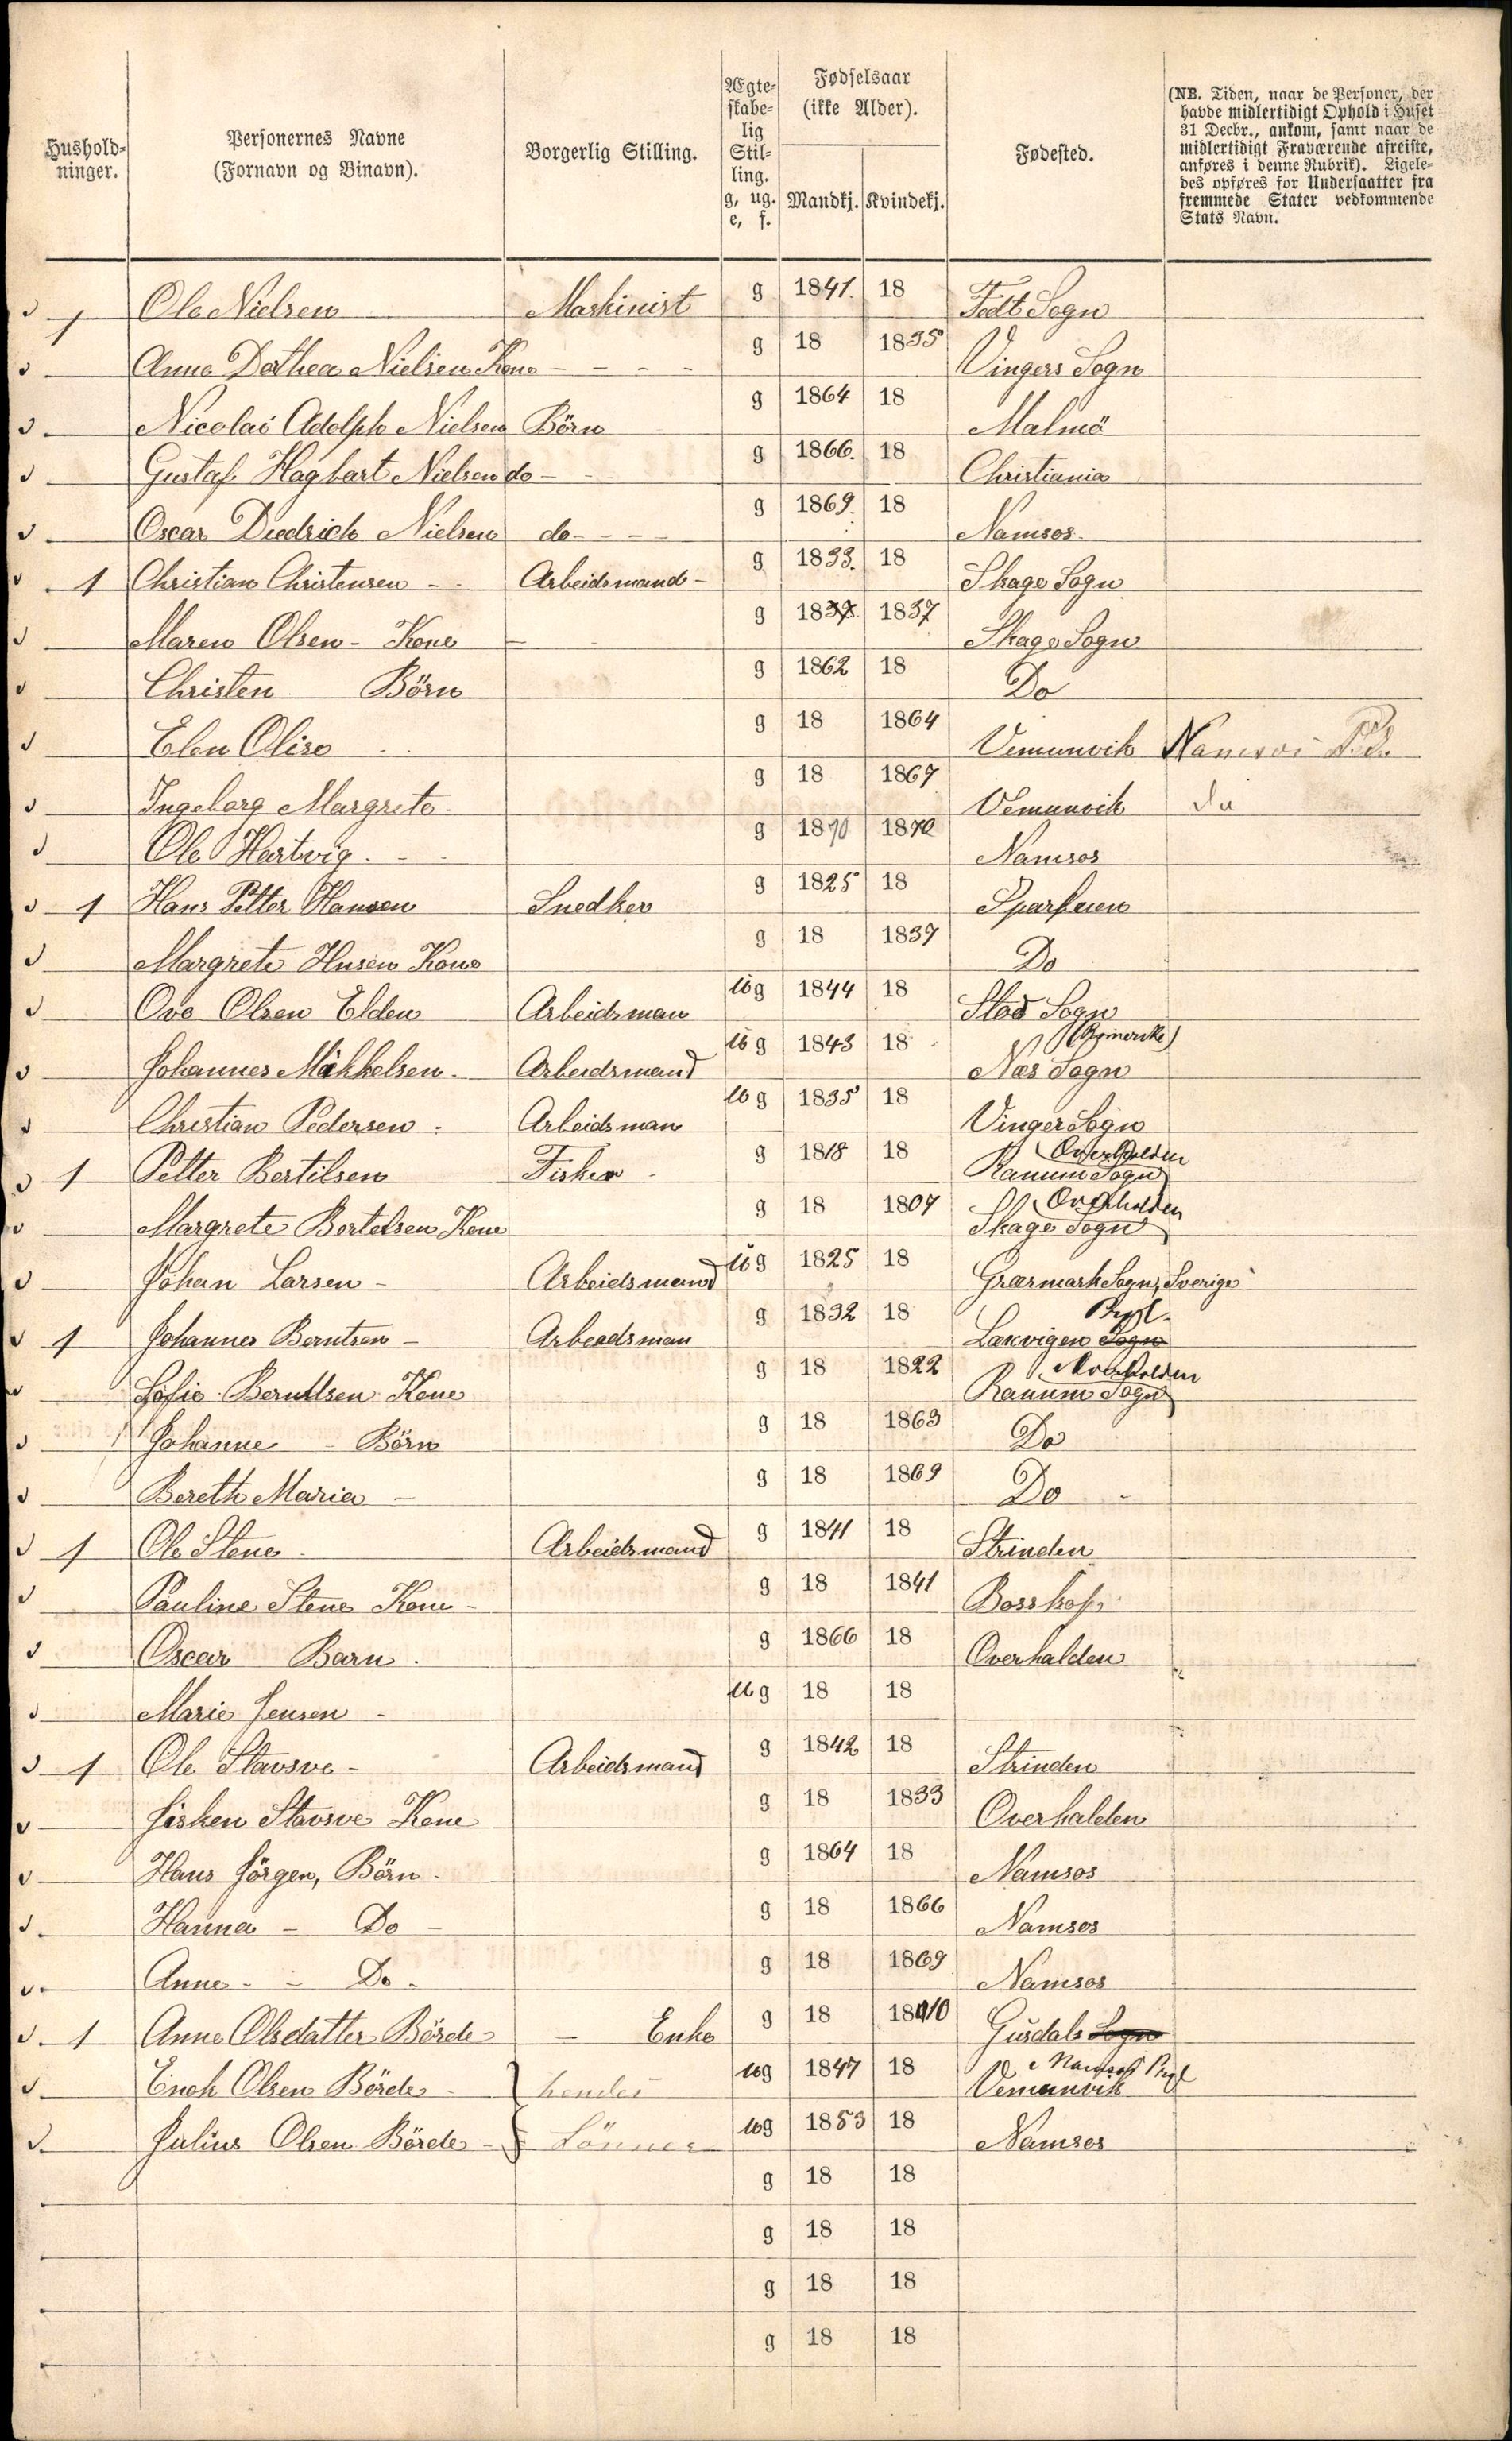 Hushold-
ninger.
Personernes Navne
(Fornavn og Binavn).
Borgerlig Stilling.
Ægte-
skabe-
lig
Stil-
ling.
g, ug.
e, f.
Fødselsaar
(ikke Alder).
Mandkj. Kvindekj.
Fødested.
(NB. Tiden, naar de Personer, der
havde midlertidigt Ophold i Huset
31 Decbr., ankom, samt naar de
midlertidigt Fraværende afreiste,
anføres i denne Rubrik). Ligele-
des opføres for Undersaatter fra
fremmede Stater vedkommende
Stats Navn.
1 Ole Nielsen Maskinist g 1841. 18 Sogn
Anne Dorthea Nielsen Kone g 18 1835 Vingers Sogn
Nicolai Adolph Nielsen Börn g 1864 18 Malmö
Gustaf Hagbart Nielsen do g 1866. 18 Christiania
Oscar Diedrich Nielsen do g 1869. 18 Namsos
1 Christian Christensen Arbeidsmand g 1833. 18 Skage Sogn
Maren Olsen - Kone g 1837 1837 Skage Sogn
Christen Börn g 1862 18 Do
Elen Olise g 18 1864 Vemunvik Namsos
Ingeborg Margrete g 18 1867 Vemunvik do
Ole Hartvig g 1870 1870 Namsos
1 Hans Petter Hansen Snedker g 1825 18 Sparbuen
Margrete Husen Kone g 18 1837 Do
Ove Olsen Elden Arbeidsman ug 1844 18 Stod Sogn
Johannes Mikkelsen Arbeidsmand ug 1843 18 Næs Sogn (Romerike)
Christian Pedersen Arbeidsman ug 1835 18 Vinger Sogn
1 Petter Bertilsen Fisker g 1818 18 Ranum Sogn Overhalden
Margrete Bertelsen Kone g 18 1807 Skage Sogn Overhalden
Johan Larsen Arbeidsmand ug 1825 18 Græsmark Sogn, Sverige
1 Johannes Berntsen Arbeidsman g 1832 18 Lexvigen Sogn Prgl.
Sofie Berntlsen Kone g 18 1822 Ranum Sogn Overhalden
Johanne - Börn g 18 1863 Do
Bereth Maria g 18 1869 Do
1 Ole Stene Arbeidsmand g 1841 18 Strinden
Pauline Stene Kone g 18 1841
Oscar Barn g 1866 18 Overhalden
Marie Jensen ug 18 18
1 Ole Stavsve Arbeidsmand g 1842 18 Strinden
Fisken Stavsve Kone g 18 1833 Overhalden
Hans Jörgen, Börn g 1864 18 Namsos
Hanna - Do g 18 1866 Namsos
Anne - Do g 18 1869 Namsos
1 Anne Olsdatter Börde Enke g 18 1810 Gusdals Sogn
Enok Olsen Börde } hendes ug 1847 18 Vemunvik Namsos Prgl
Julius Olsen Börde } Sönner ug 1853 18 Namsos
g 18 18
g 18 18
g 18 18
g 18 18